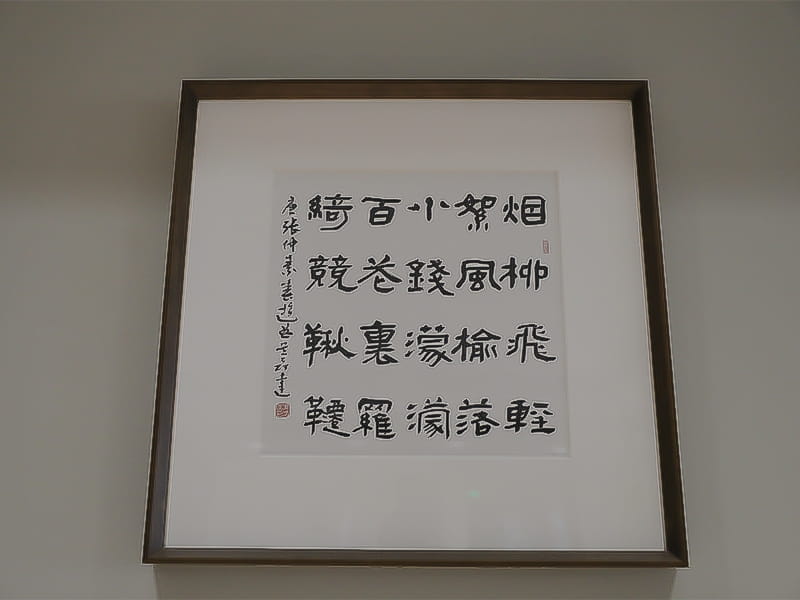 烟柳飛輕
絮風榆落
小錢濛濛
百花裏羅
綺競鞦韆
唐張仲素春遊曲